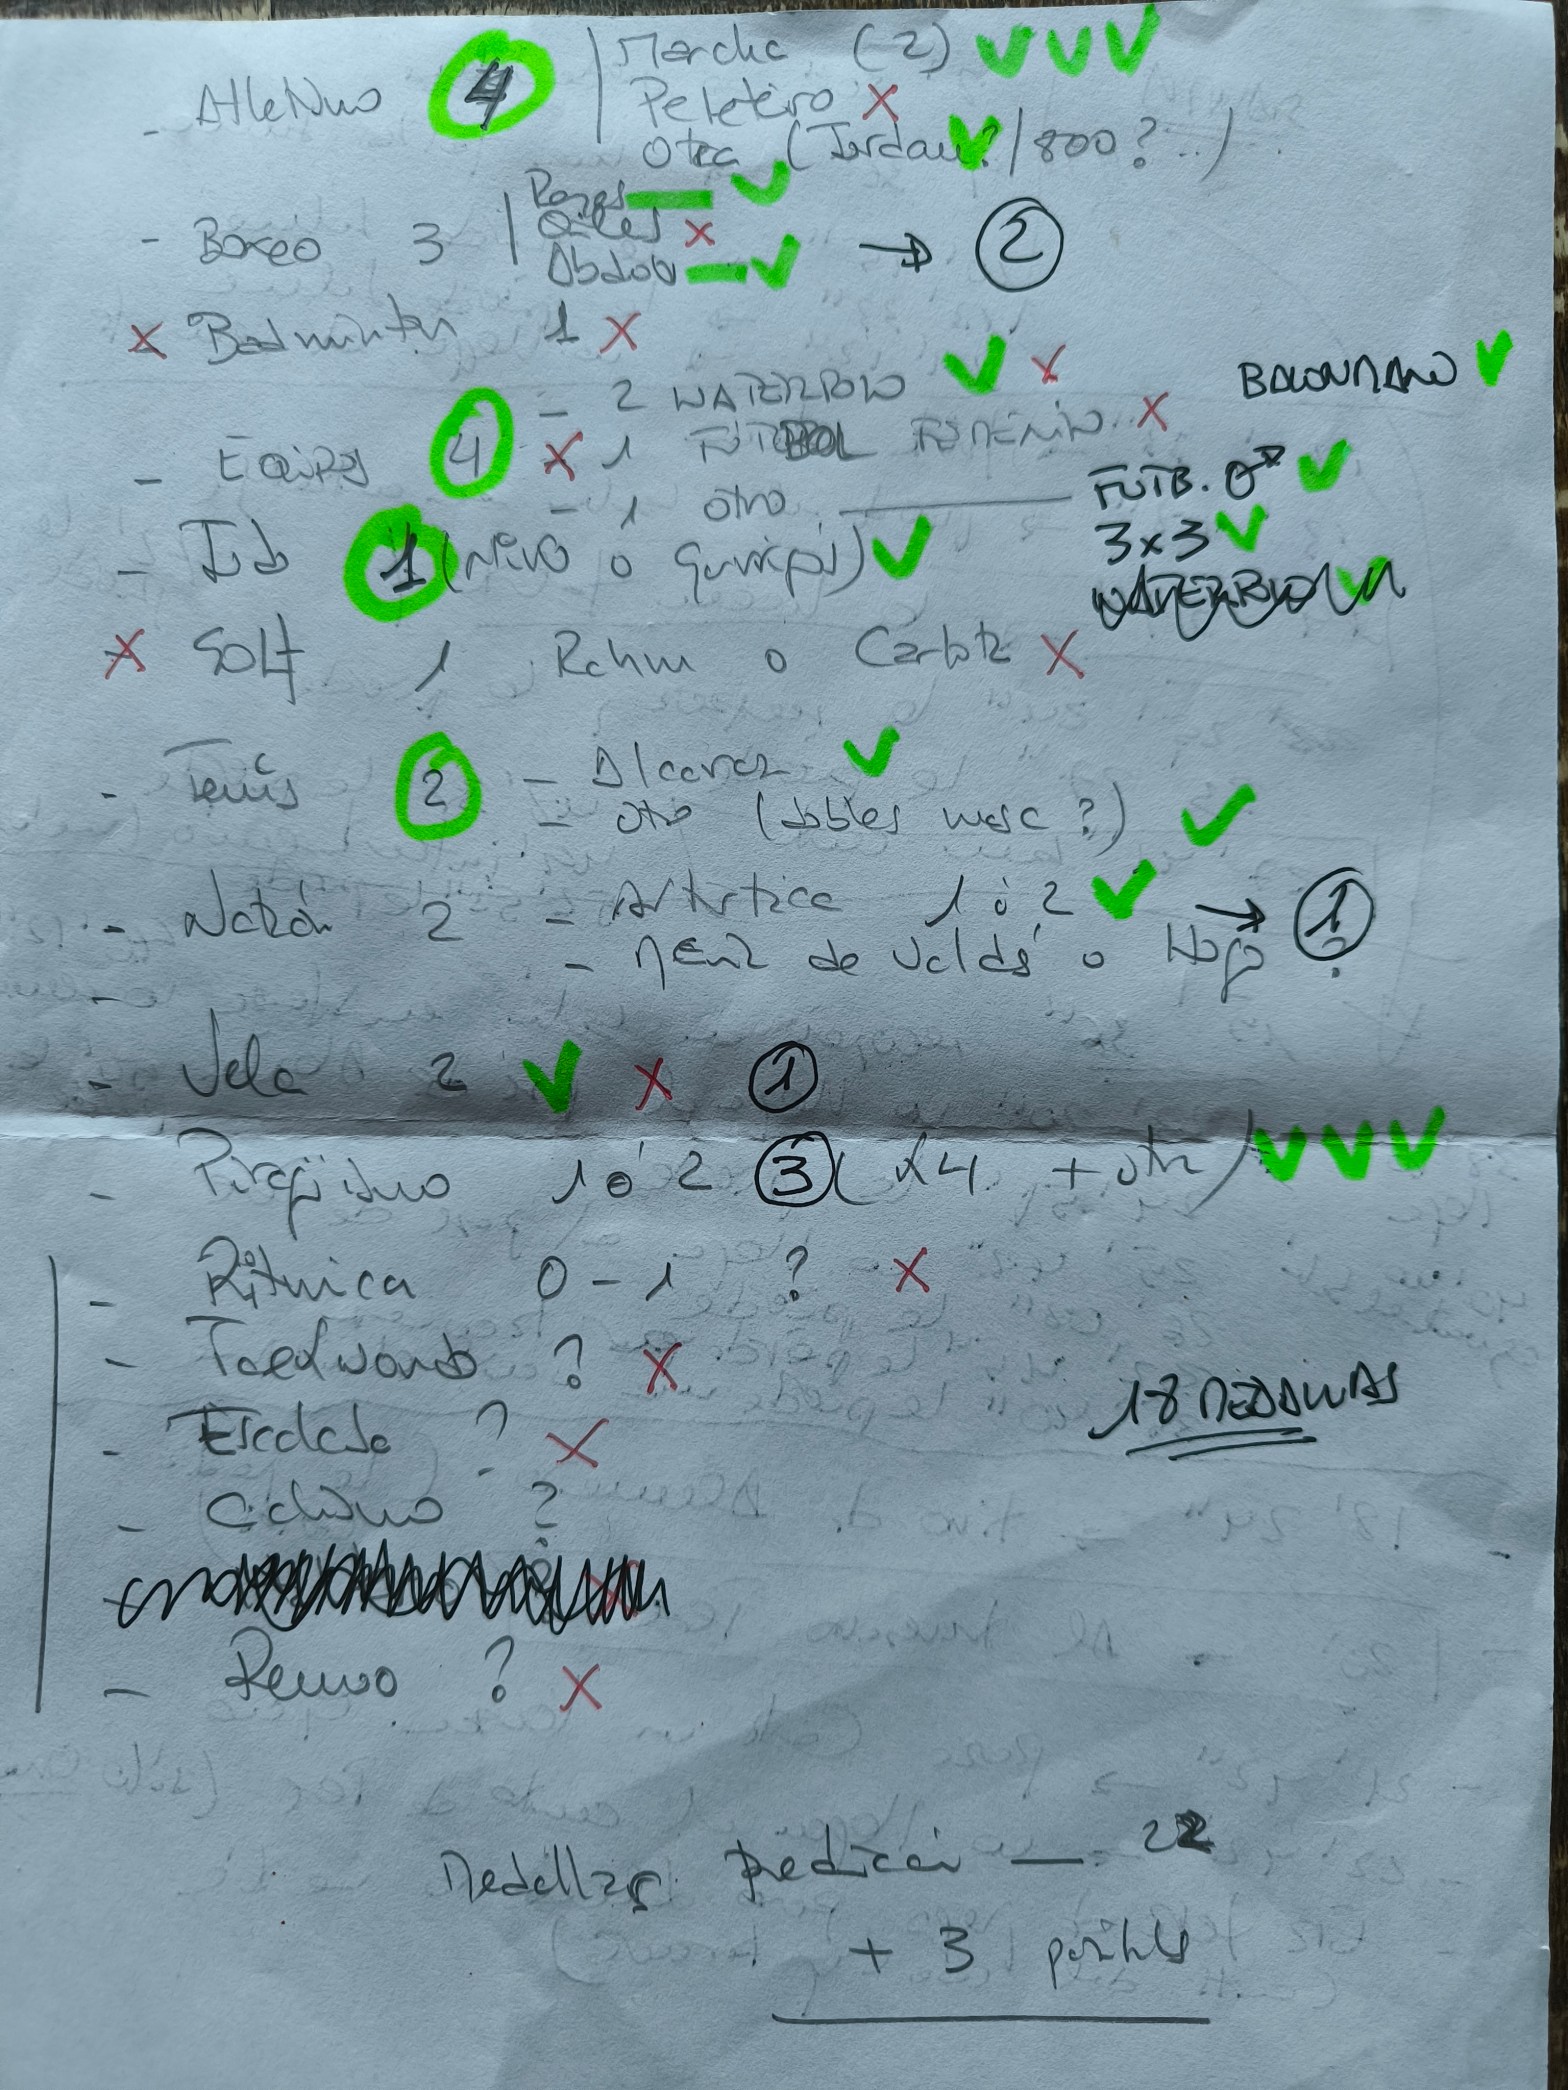 - Atletismo 4 | Marcha (2)
Peleteiro
Otra (Jordan? / 800? ..)
- Boxeo 3 | Reyes
Quiles
Abdou
→ 2
Badminton 1
- Equipos 4 - 2 WATERPOLO
BALONMANO
1 FÚTBOL FEMENINO
- 1 otro
FUTB. ♂
3x3
WATERPOLO
- Judo 1 (Niko o Garrigós)
Golf 1 Rahm o Carlota
- Tenis 2 - Alcaraz
- otro (dobles masc?)
- Natación 2 - Artística 1 ó 2 → 1
- Menz de Valdés o Hugo ?
-
- Vela 2 1
- Piragüismo 1 ó 2 3 (K4 + otra)
- Rítmica 0 - 1 ?
- Taekwondo ?
- Escalada ?
18 MEDALLAS
- Ciclismo ?
- Remo ?
Medallas predicción — 22
+ 3 posibles